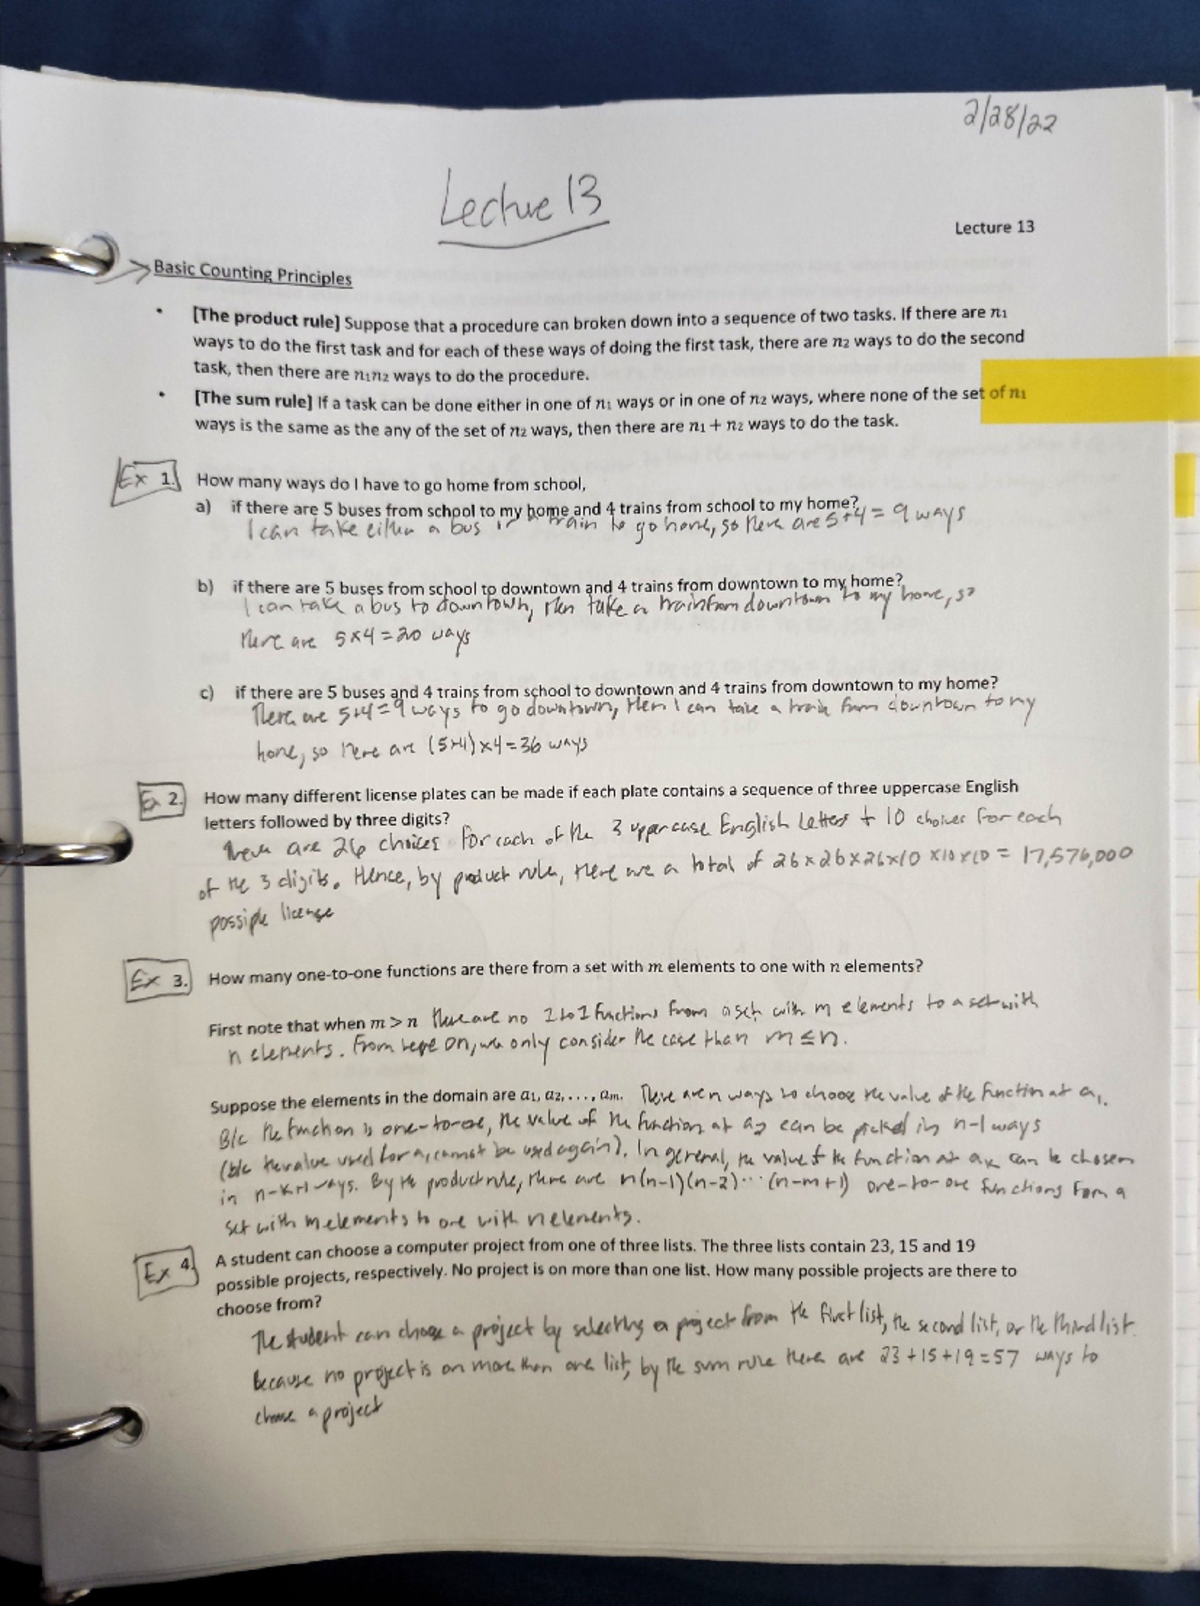 2/28/22
Lecture 13
Lecture 13
Basic Counting Principles
• [The product rule] Suppose that a procedure can broken down into a sequence of two tasks. If there are n1
ways to do the first task and for each of these ways of doing the first task, there are n2 ways to do the second
task, then there are n1n2 ways to do the procedure.
• [The sum rule] If a task can be done either in one of n1 ways or in one of n2 ways, where none of the set of n1
ways is the same as the any of the set of n2 ways, then there are n1 + n2 ways to do the task.
Ex 1. How many ways do I have to go home from school,
a) if there are 5 buses from school to my home and 4 trains from school to my home?
I can take either a bus or a train to go home, so there are 5+4 = 9 ways
b) if there are 5 buses from school to downtown and 4 trains from downtown to my home?
I can take a bus to downtown, then take a train from downtown to my home, so
there are 5×4 = 20 ways
c) if there are 5 buses and 4 trains from school to downtown and 4 trains from downtown to my home?
There are 5+4=9 ways to go downtown, then I can take a train from downtown to my
home, so there are (5+4)×4=36 ways
Ex 2. How many different license plates can be made if each plate contains a sequence of three uppercase English
letters followed by three digits?
There are 26 choices for each of the 3 uppercase English letters + 10 choices for each
of the 3 digits. Hence, by product rule, there are a total of 26×26×26×10×10×10 = 17,576,000
possible license
Ex 3. How many one-to-one functions are there from a set with m elements to one with n elements?
First note that when m > n there are no 1 to 1 functions from a set with m elements to a set with
n elements. From here on, we only consider the case than m ≤ n.
Suppose the elements in the domain are a1, a2, . . . , am. There are n ways to choose the value of the function at a1.
B/c the function is one-to-one, the value of the function at a2 can be picked in n-1 ways
(b/c the value used for a1 cannot be used again). In general, the value of the function at ak can be chosen
in n-k+1 ways. By the product rule, there are n(n-1)(n-2)···(n-m+1) one-to-one functions from a
set with m elements to one with n elements.
Ex 4. A student can choose a computer project from one of three lists. The three lists contain 23, 15 and 19
possible projects, respectively. No project is on more than one list. How many possible projects are there to
choose from?
The student can choose a project by selecting a project from the first list, the second list, or the third list.
Because no project is on more than one list, by the sum rule there are 23+15+19=57 ways to
choose a project